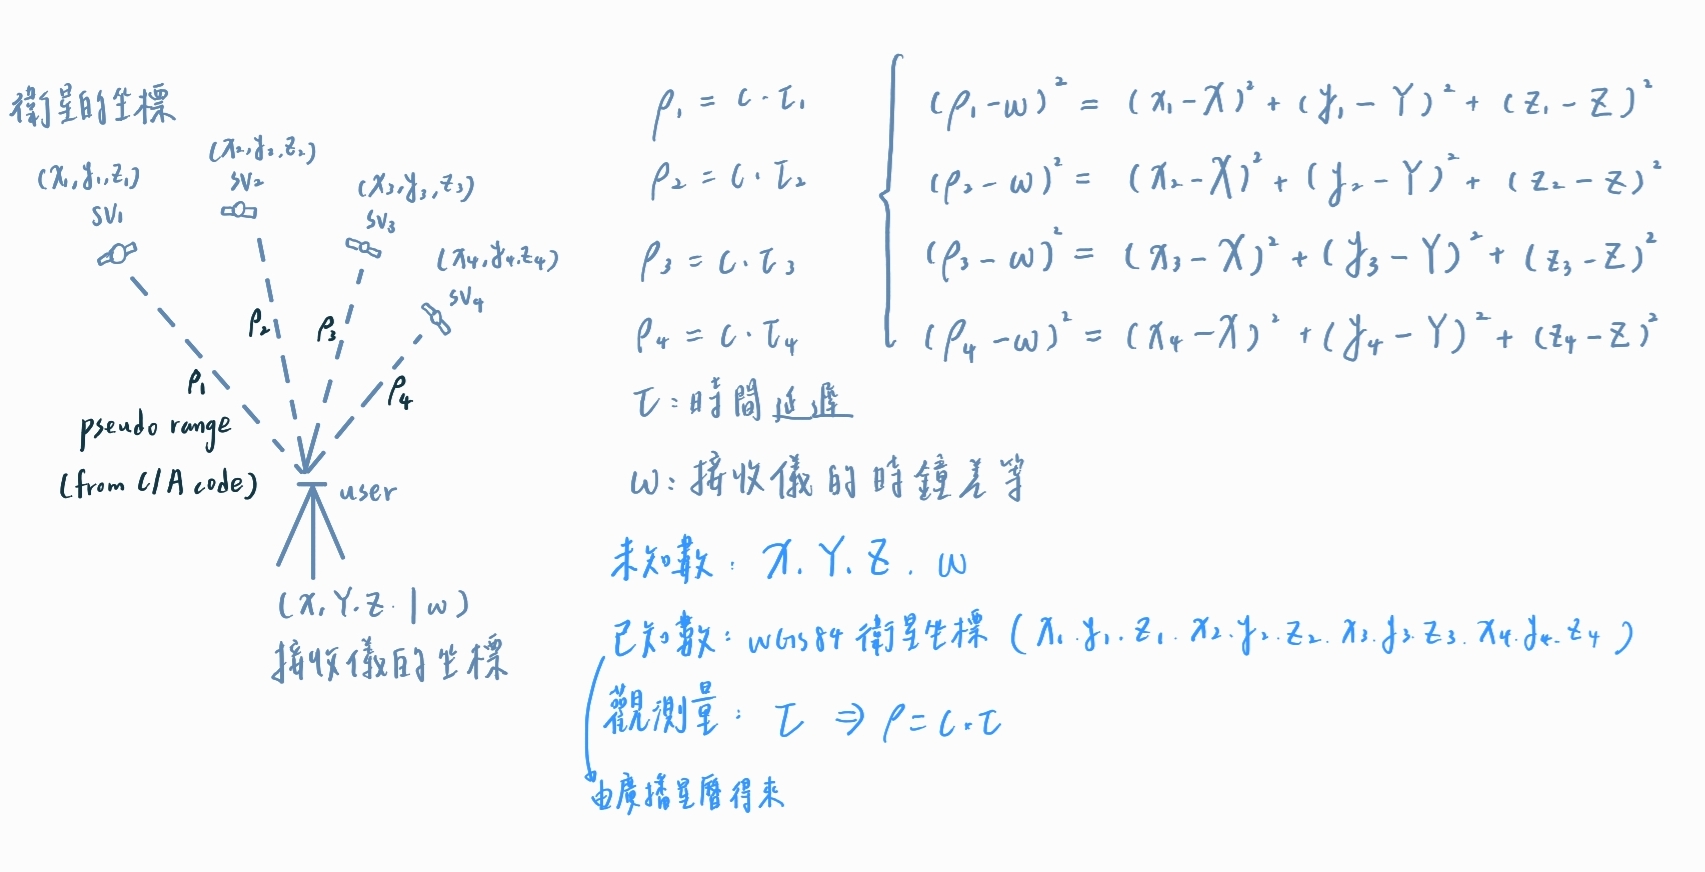 衛星的坐標
(x₁,y₁,z₁)
SV₁
(x₂,y₂,z₂)
SV₂
(x₃,y₃,z₃)
SV₃
(x₄,y₄,z₄)
SV₄
ρ₁
ρ₂
ρ₃
ρ₄
pseudo range
(from C/A code)
user
(X.Y.Z.|w)
接收儀的坐標
ρ₁ = c·τ₁
ρ₂ = c·τ₂
ρ₃ = c·τ₃
ρ₄ = c·τ₄
(ρ₁-w)² = (x₁-X)² + (y₁-Y)² + (z₁-Z)²
(ρ₂-w)² = (x₂-X)² + (y₂-Y)² + (z₂-Z)²
(ρ₃-w)² = (x₃-X)² + (y₃-Y)² + (z₃-Z)²
(ρ₄-w)² = (x₄-X)² + (y₄-Y)² + (z₄-Z)²
τ:時間延遲
w:接收儀的時鐘差等
未知數:X.Y.Z.w
已知數:WGS84衛星坐標(x₁.y₁.z₁.x₂.y₂.z₂.x₃.y₃.z₃.x₄.y₄.z₄)
觀測量:τ ⇒ ρ=c·τ
由廣播星曆得來